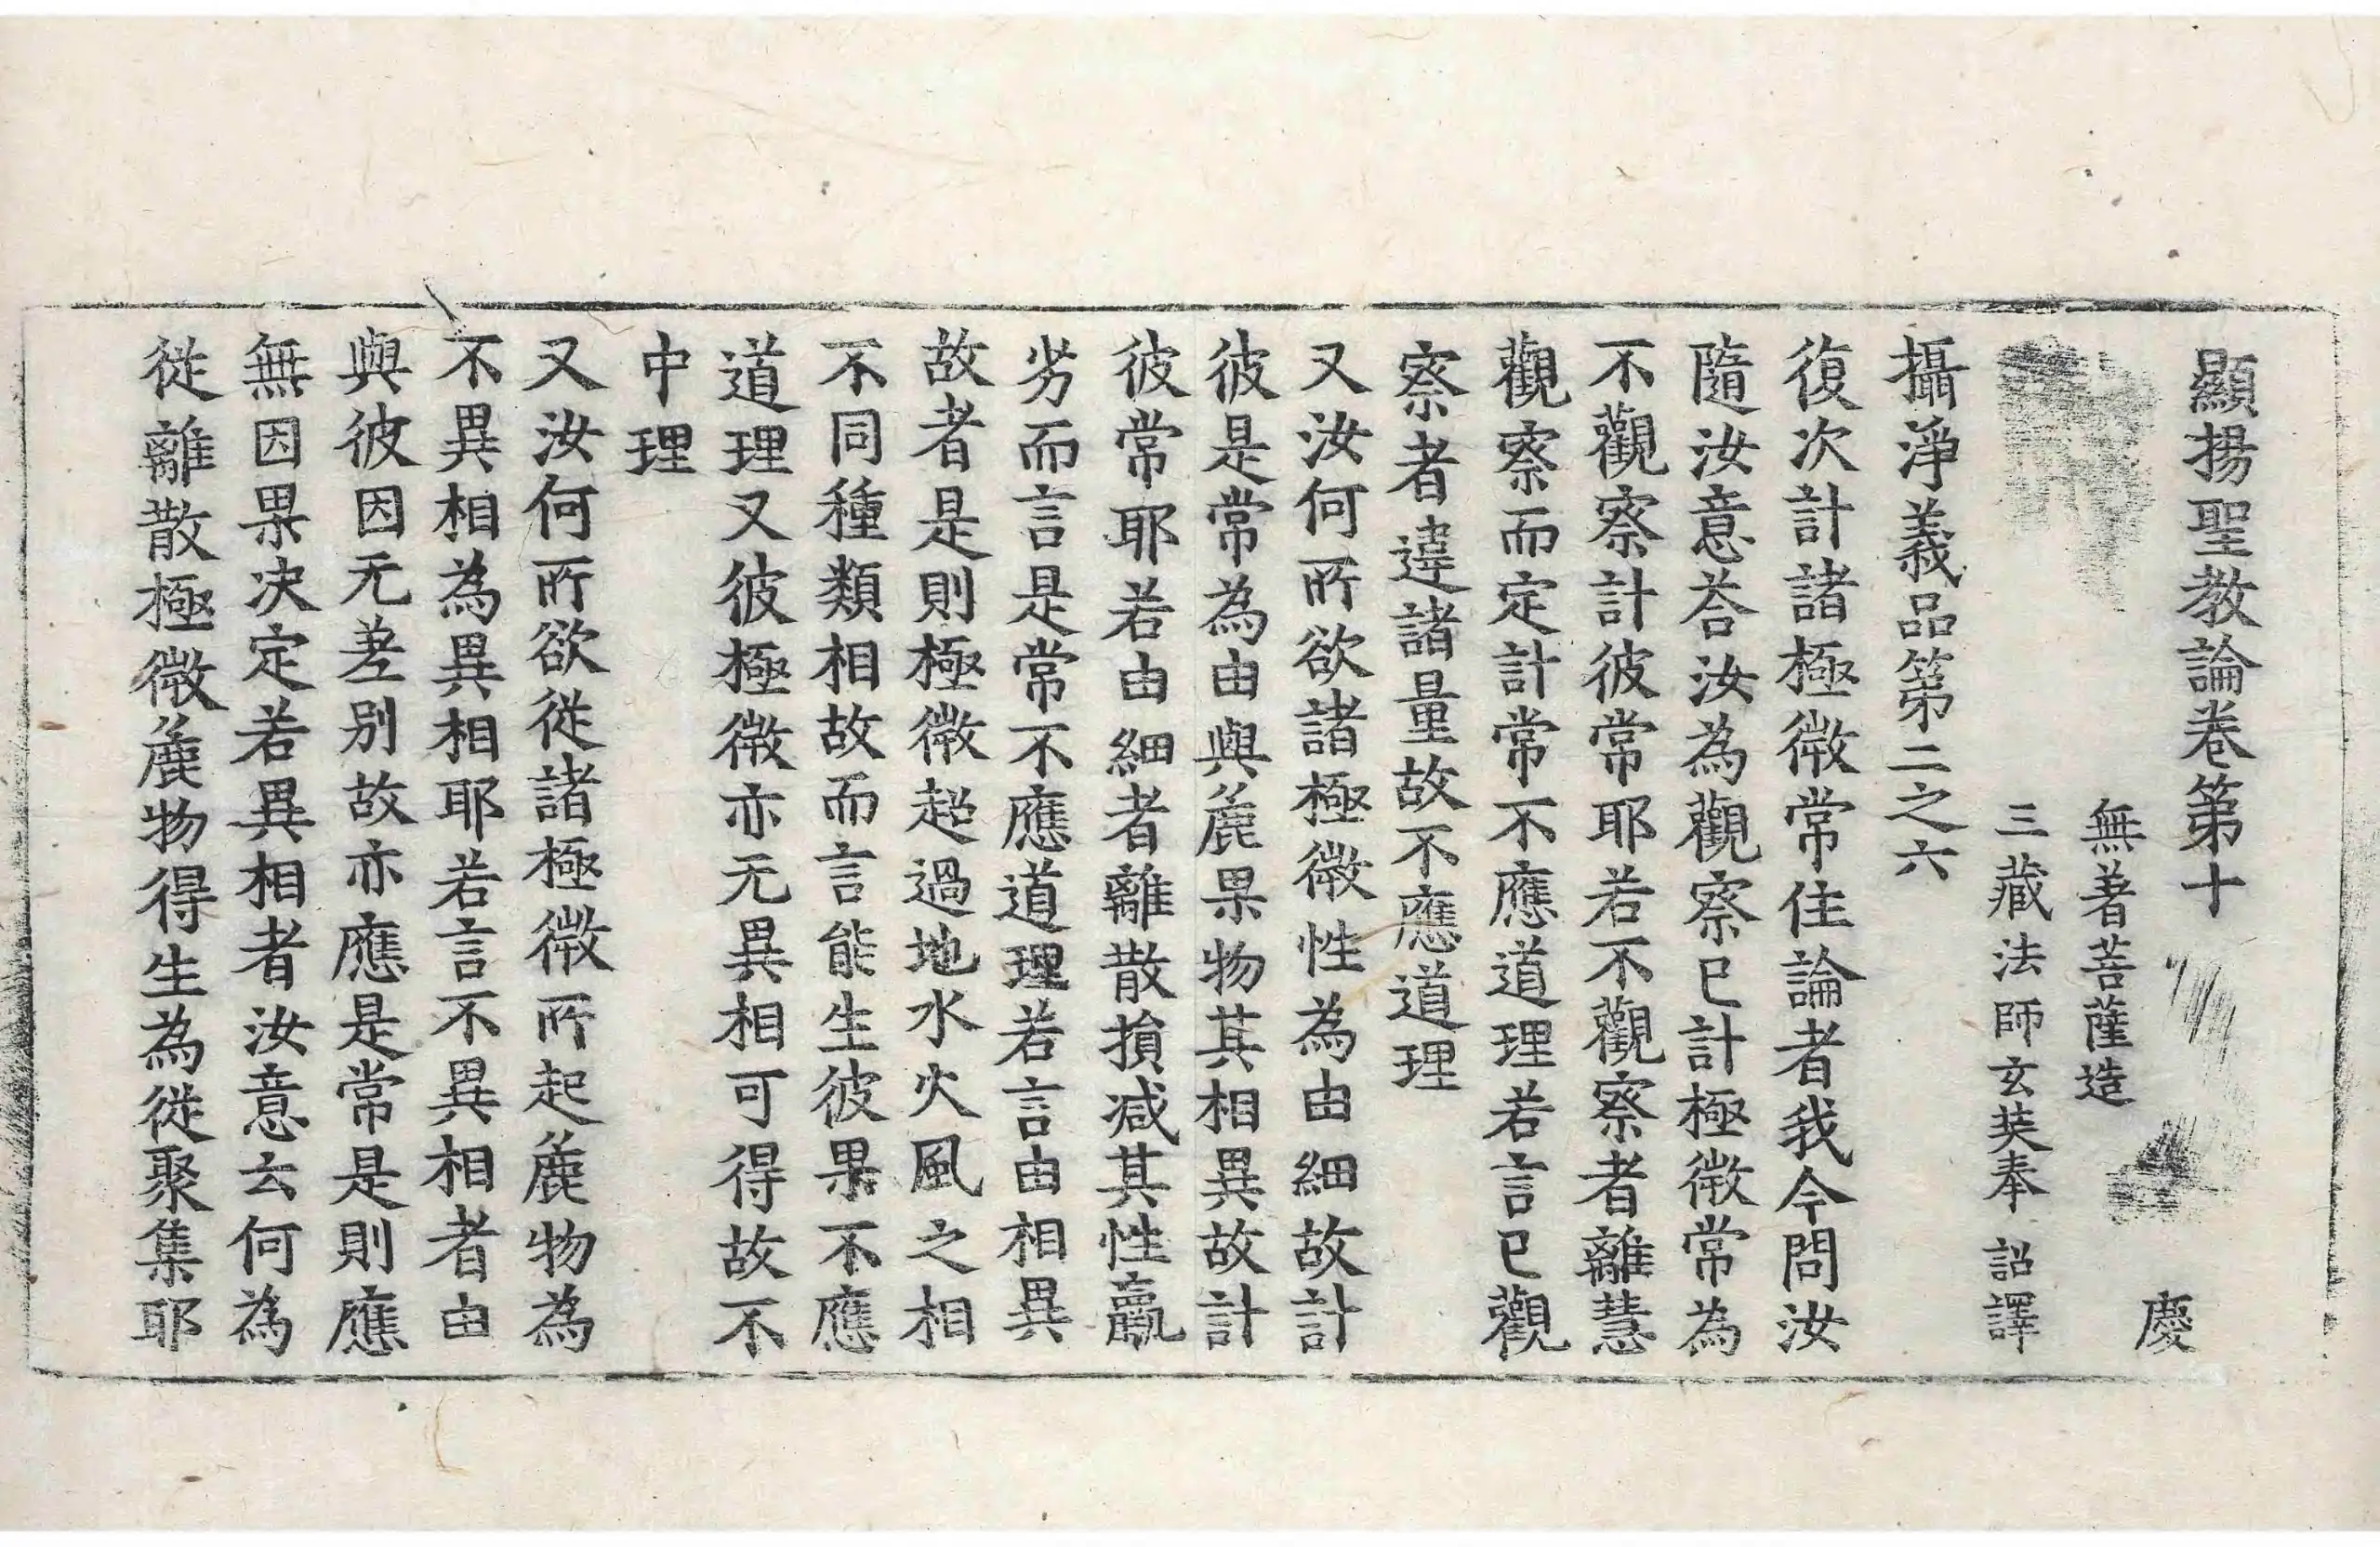 顯揚聖教論卷第十
慶
無著菩薩造
三藏法師玄奘奉 詔譯
攝淨義品第二之六
復次計諸極微常住論者我今問汝
隨汝意荅汝為觀察已計極微常為
不觀察計彼常耶若不觀察者離慧
觀察而定計常不應道理若言已觀
察者違諸量故不應道理
又汝何所欲諸極微性為由細故計
彼是常為由與麁果物其相異故計
彼常耶若由細者離散損減其性羸
劣而言是常不應道理若言由相異
故者是則極微超過地水火風之相
不同種類相故而言能生彼果不應
道理又彼極微亦无異相可得故不
中理
又汝何所欲從諸極微所起麁物為
不異相為異相耶若言不異相者由
與彼因无差別故亦應是常是則應
無因果决定若異相者汝意云何為
從離散極微麁物得生為從聚集耶